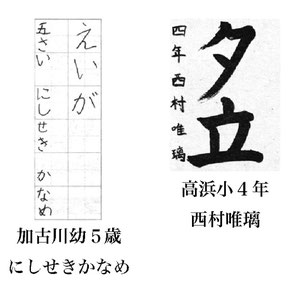 えいが
五さい にしせき かなめ
加古川幼5歳
にしせきかなめ
夕立
四年西村唯璃
高浜小4年
西村唯璃